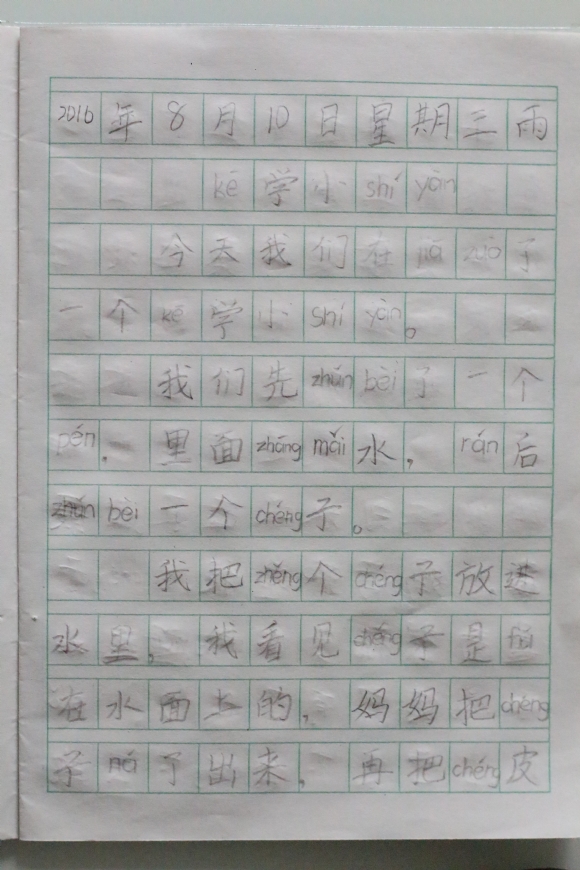 2016年8月10日星期三雨
kē学小shí yàn
今天我们在jiā zuò了
一个kē学小shí yàn。
我们先zhǔn bèi了一个
pén，里面zhāng mǎi水，rán后
zhǔn bèi一个chéng子。
我把zhěng个chéng子放进
水里，我看见chéng子是fú
在水面上的，妈妈把chéng
子ná了出来，再把chéng皮